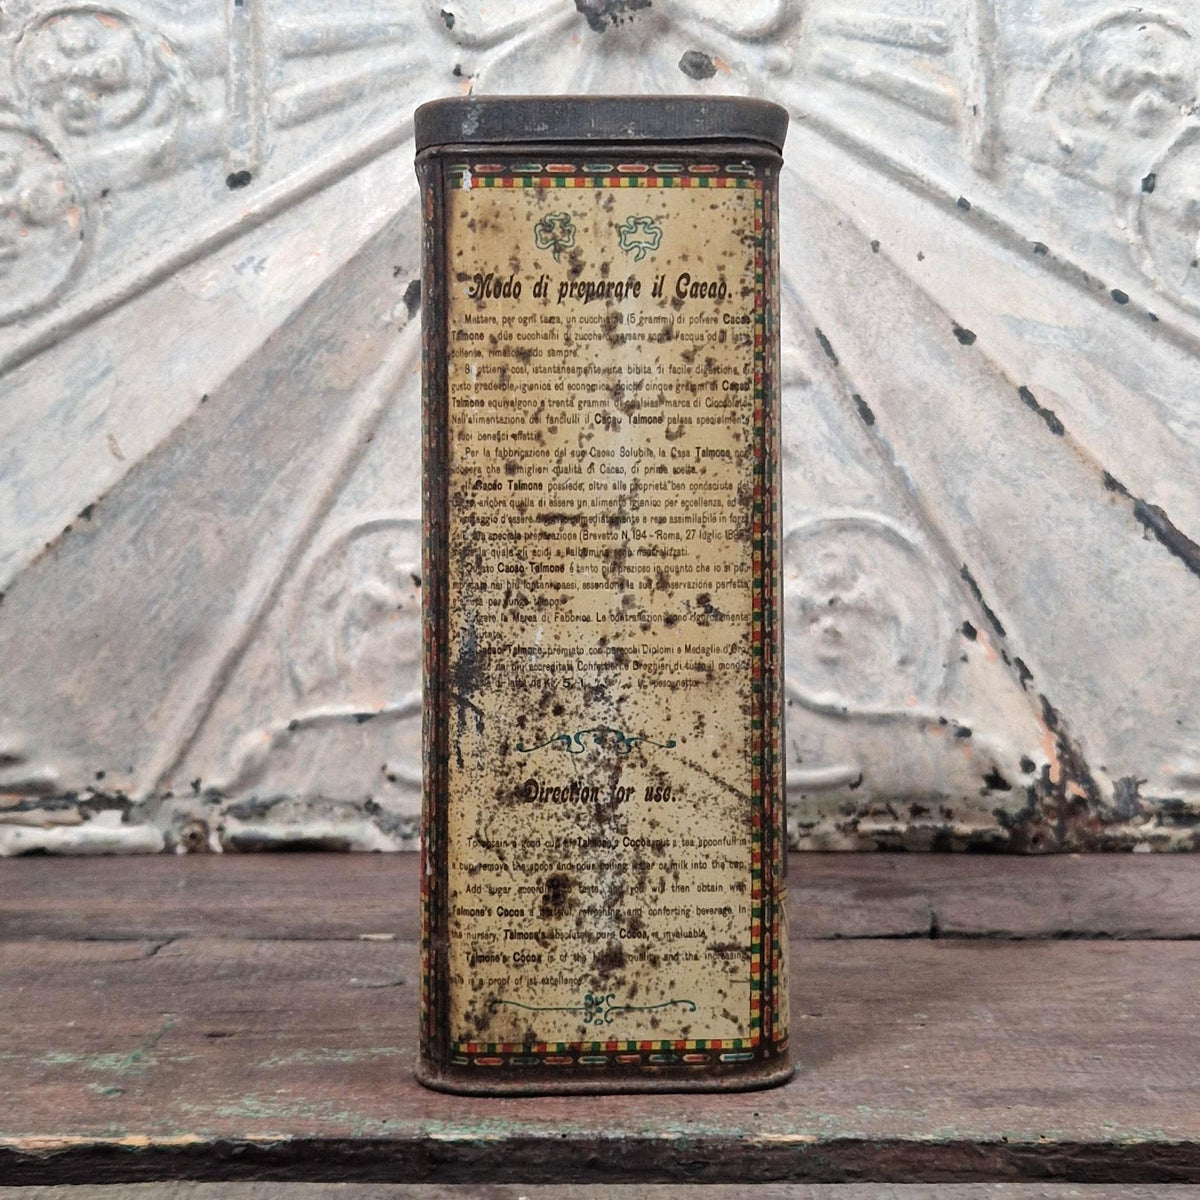 Modo di preparare il Cacao.
Mettere, per ogni tazza, un cucchiaino (5 grammi) di polvere Cacao
Talmone e due cucchiaini di zucchero, versare sopra l'acqua od il latte
bollente, rimescolando sempre.
Si ottiene così, istantaneamente, una bibita di facile digestione, di
gusto gradevole, igienica ed economica, poichè cinque grammi di Cacao
Talmone equivalgono a trenta grammi di qualsiasi marca di Cioccolato.
Nell'alimentazione dei fanciulli il Cacao Talmone palesa specialmente
i suoi benefici effetti.
Per la fabbricazione del suo Cacao Solubile, la Casa Talmone non
adopera che le migliori qualità di Cacao, di prima scelta.
Il Cacao Talmone possiede, oltre alle proprietà ben conosciute del
ancora quella di essere un alimento igienico per eccellenza, ed
d'essere immediatamente e reso assimilabile in forza
speciale preparazione (Brevetto N. 194 - Roma, 27 luglio
la quale gli acidi e l'albumina sono neutralizzati.
Questo Cacao Talmone é tanto più prezioso in quanto che io si può
nei più lontani paesi, essendone la sua conservazione perfetta
per lungo tempo.
la Marca di Fabbrica. Le contraffazioni sono rigorosamente
Cacao Talmone, premiato con parecchi Diplomi e Medaglie d'Oro,
dai più accreditati Confettieri e Droghieri di tutto il mondo
di latta da Kg. peso netto
Direction for use.
To obtain a good cup of Talmone's Cocoa put a tea spoonfull in
a cup, remove the spoon and pour boiling water or milk into the cup.
Add sugar according to taste, and you will then obtain with
Talmone's Cocoa a grateful, refreshing and conforting beverage. In
the nursery, Talmone's absolutely pure Cocoa, is invaluable.
Talmone's Cocoa is of the highest quality and the increasing
sale is a proof of ist excellence.